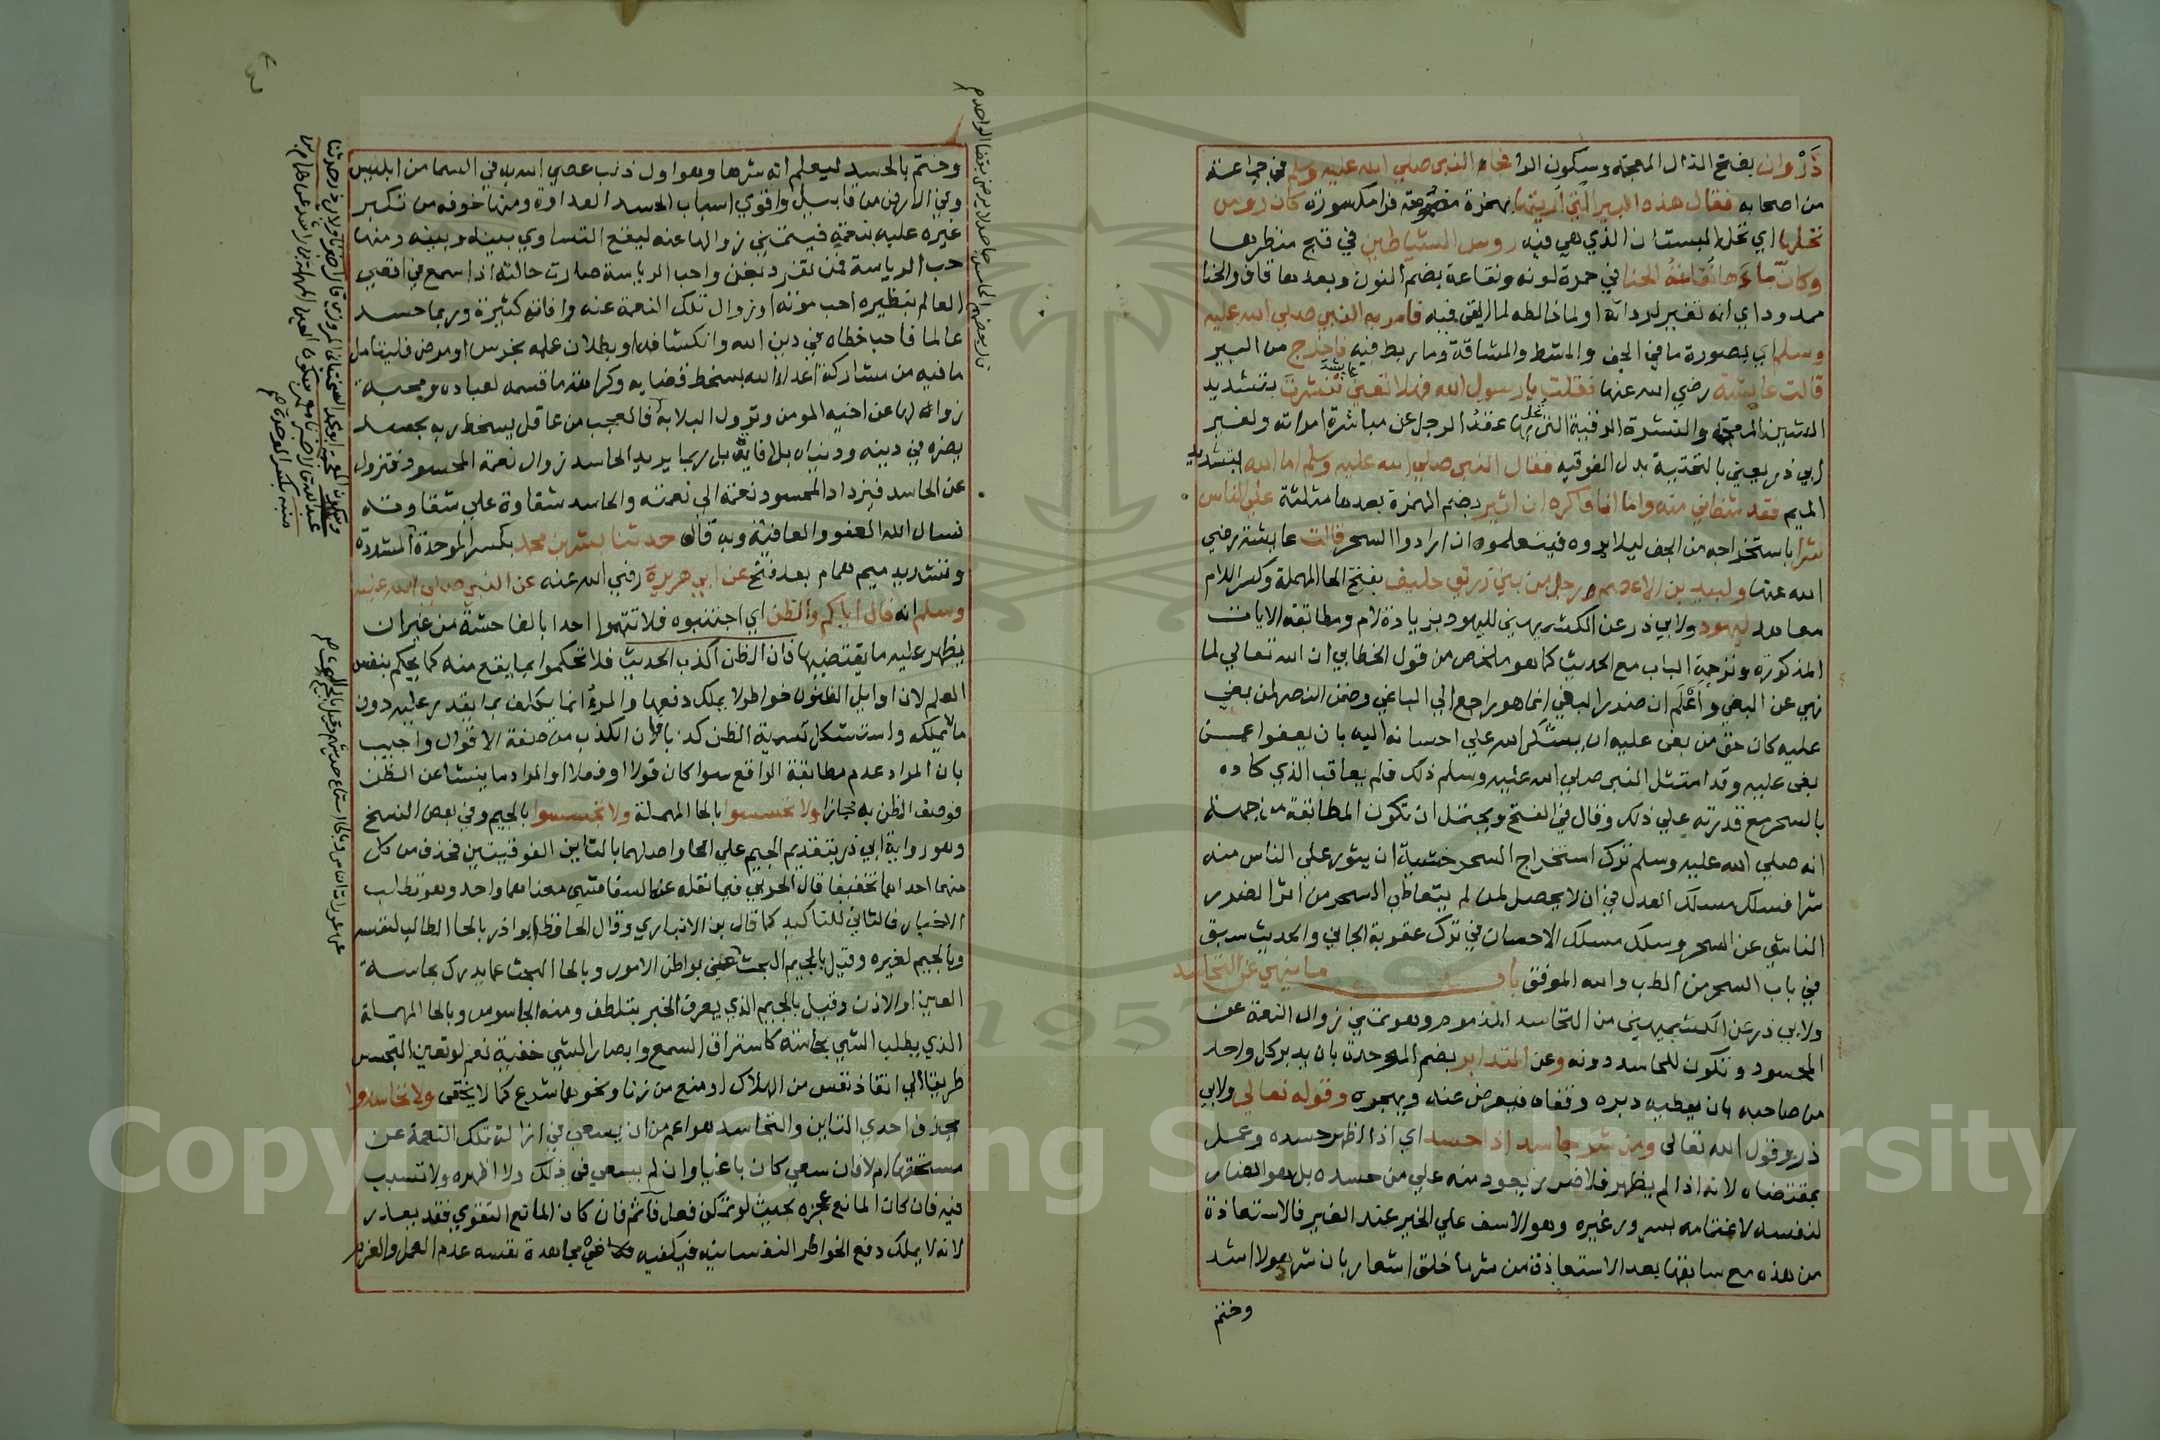 ذَرْوان بفتح الذال المعجمة وسكون الراء فجاء النبي صلي الله عليه وسلم في جماعة
من اصحابه فقال هذه البير التي أريتها بهمزة مضمومة فرا مكسورة كان روس
نخلها اي نخل البستان الذي هي فيه روس الشياطين في قبح منظرها
وكان ماءها نُقاعة الحنا في حمرة لونه ونقاعة بضم النون وبعدها قاف والحنا
ممدود اي انه تغير لرداته او لما خالطه لما القي فيه فامر به النبي صلي الله عليه
وسلم اي بصورة ما في الجف والمشط والمشاقة وما ربط فيه فاخرج من البير
قالت عايشة رضي الله عنها فقلت يا رسول الله فهلا تعني تنشرت بتشديد
الشين المعجمة والنشرة الرقية التي بها عقد الرجل عن مباشرة امراته ولغير
ابي ذر يعني بالتحتية بدل الفوقية فقال النبي صلي الله عليه وسلم اما الله بتشديد
الميم فقد شفاني منه واما انا فاكره ان اثير بضم الهمزة بعدها مثلثة علي الناس
شرا باستخراجه من الجف ليلا يروه فيتعلموه ان ارادوا السحر قالت عايشة رضي
الله عنها ولبيد بن الاعصم رجل من بني زريق حليف بفتح الحا المهملة وكسر اللام
معاهد ليهود ولابي ذر عن الكشميهني لليهود بزيادة لام ومطابقة الايات
المذكورة وترجمة الباب مع الحديث كما هو ملخص من قول الخطابي ان الله تعالي لما
نهي عن البغي وأعْلَم ان ضرر البغي انما هو راجع الي الباغي وضمن النصر لمن بغي
عليه كان حق من بغي عليه ان يشكر الله علي احسانه اليه بان يعفوا عمن
بغي عليه وقد امتثل النبي صلي الله عليه وسلم ذلك فلم يعاقب الذي كاده
بالسحر مع قدرته علي ذلك وقال في الفتح ويحتمل ان تكون المطابقة من جهة
انه صلي الله عليه وسلم ترك استخراج السحر خشية ان يثور علي الناس منه
شرا فسلك مسلك العدل في ان لا يحصل لمن لم يتعاطي السحر من اثر الضرر
الناشي عن السحر وسلك مسلك الاحسان في ترك عقوبة الجاني والحديث سبق
في باب السحر من الطب والله الموفق باب ما ينهي عن التحاسد
ولابي ذر عن الكشميهيني من التحاسد المذموم وهو تمني زوال النعمة عن
المحسود وتكون للحاسد دونه وعن التدابر بضم الموحدة بان يدبر كل واحد
من صاحبه بان يعطيه دبره وقفاه فيعرض عنه ويهجره وقوله تعالي ولابي
ذر وقول الله تعالي ومن شر حاسد اذا حسد اي اذا اظهر حسده وعمل
بمقتضاه لانه اذا لم يظهر فلا ضرر يعود منه علي من حسده بل هو الضار
لنفسه لاغتمامه بسرور غيره وهو الاسف علي الخير عند الغير فالاستعاذة
من هذه مع سابقتها بعد الاستعاذة من شر ما خلق اشعار بان شر هولا اشد
وختم
وختم بالحسد ليعلم انه شرها وهو اول ذنب عصي الله به في السما من ابليس
وفي الارض من قابيل واقوي اسباب الحسد العداوة ومنها خوفه من تكبر
غيره عليه بنعمة فيتمني زوالها عنه ليقع التساوي بينه وبينه ومنها
حب الرياسة فمن تفرد بفن واحب الرياسة صارت حالته اذا سمع في اقصي
العالم بنظيره احب موته او زوال تلك النعمة عنه وافاته كثيرة وربما حسد
عالما فاحب خطاه في دين الله وانكشافه او بطلان علمه بخرس او مرض فليتامل
ما فيه من مشاركة اعداء الله بسخط قضايه وكراهة ما قسمه لعباده ومحبة
زواله لها عن اخيه المومن ونزول البلا به فالعجب من عاقل يسخط ربه بحسد
يضره في دينه ودنياه بلا فايدة بل ربما يريد الحاسد زوال نعمة المحسود فتزول
عن الحاسد فيزداد المحسود نعمة الي نعمته والحاسد شقاوة علي شقاوته
نسال الله العفو والعافية وبه قال حدثنا بشر بن محمد بكسر الموحدة المشددة
وتشديد ميم همام بعد فتح عن ابي هريرة رضي الله عنه عن النبي صلي الله عليه
وسلم انه قال اياكم والظن اي اجتنبوه فلا تتهموا احدا بالفاحشة من غير ان
يظهر عليه ما يقتضيها فان الظن اكذب الحديث فلا تحكموا بما يقع منه كما يحكم بنفس
العلم لان اوايل الظنون خواطر لا يملك دفعها والمرؤ انما يكلف بما يقدر عليه دون
ما لا يملكه واستشكل تسمية الظن كذبا فان الكذب من صفة الاقوال واجيب
بان المراد عدم مطابقة الواقع سوا كان قولا او فعلا او المراد ما ينشا عن الظن
فوصف الظن به مجازا ولا تحسسوا بالحا المهملة ولا تجسسوا بالجيم وفي بعض النسخ
وهو رواية ابي ذر بتقديم الجيم علي الحا واصلهما بالتاين الفوقيتين فحذف من كل
منهما احداهما تخفيفا قال الحربي فيما نقله عنه السفاقسي معناهما واحد وهو تطلب
الاخبار فالثاني للتاكيد كما قال بن الانباري وقال الحافظ ابو ذر بالحا الطالب لنفسه
وبالجيم لغيره وقيل بالجيم البحث عن بواطن الامور وبالحا البحث عما يدرك بحاسة
العين او الاذن وقيل بالجيم الذي يعرف الخبر بتلطف ومنه الجاسوس وبالحا المهملة
الذي يطلب الشي بحاسته كاستراق السمع وابصار الشي خفية نعم لو تعين التجسس
طريقا الي انقاذ نفس من الهلاك او منع من زنا ونحوهما شرع كما لا يخفي ولا تحاسدوا
بحذف احدي التاين والتحاسد هو اعم من ان يسعي في ازالة تلك النعمة عن
مستحقها ام لا فان سعي كان باغيا وان لم يسعي في ذلك ولا اظهره ولا تسبب
فيه فان كان المانع عجزه بحيث لو تمكن فعل فآثم فان كان المانع التقوي فقد يعذر
لانه لا يملك دفع الخواطر النفسانية فيكفيه في مجاهدة نفسه عدم العمل والعزم